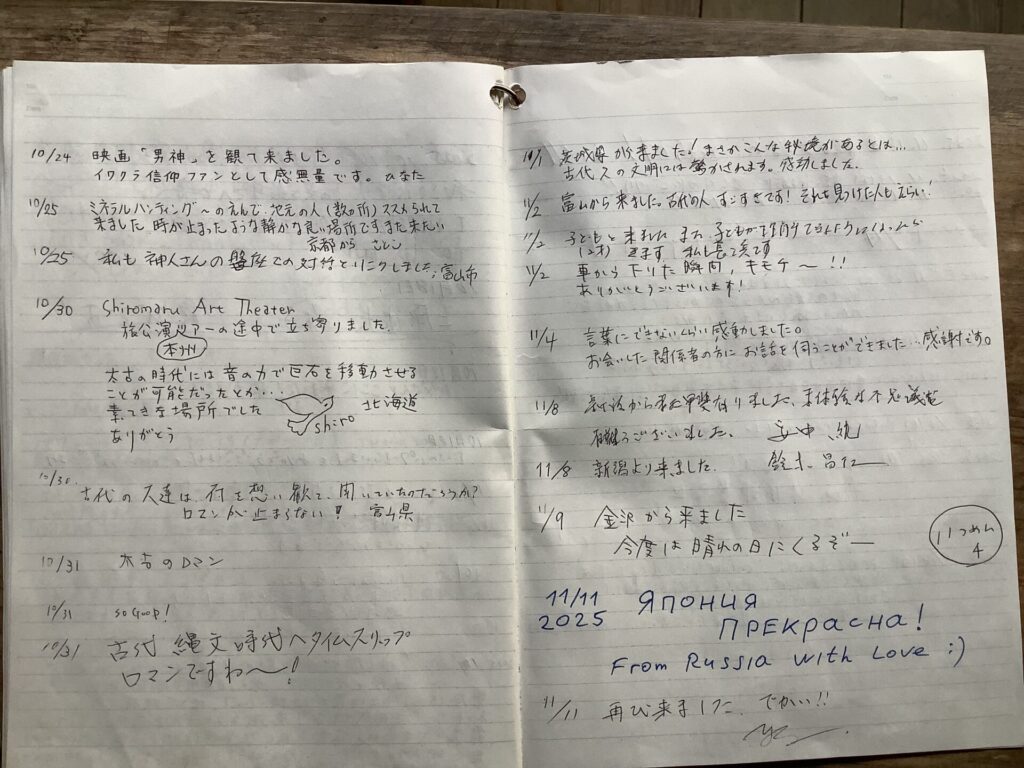 10/24 映画「男神」を観て来ました。
イワクラ信仰ファンとして感無量です。ひなた
10/25 ミネラルハンティング〜のえんで、地元の人(数ヶ所)ススメられて
来ました 時が止まったような静かな良い場所です。また来たい
京都から さとこ
10/25 私も神人さんの磐座での対行とリンクしました。富山市
10/30 Shiromaru Art Theater
旅公演ツアーの途中で立ち寄りました。
本州
太古の時代には音の力で巨石を移動させる
ことが可能だったとか・・・
素てきな場所でした
ありがとう
shiro
北海道
10/30.
古代の人達は、石を想い
ロマンが止まらない! 富山県
10/31 太古のロマン
10/31 so Good!
10/31 古代 縄文時代へタイムスリップ
ロマンですわ〜!
11/1 茨城県から来ました! まさかこんな秘境があるとは…
古代人の文明には驚かされます。感動しました。
11/2 富山から来ました。古代の人 すごすぎです! それを見つけた人もえらい!
11/2 子どもと来ました また、子どもが
(2才) きます 私も
11/2 車から下りた瞬間、キモチ〜!!
ありがとうございます!
11/4 言葉にできないくらい感動しました。
お会いした関係者の方にお話を伺うことができました…感謝です。
11/8 から来た甲斐有りました、
有難うございました、
11/8 新潟より来ました.
11/9 金沢から来ました
今度は晴れの日にくるぞー
4
11/11 ЯПОНИЯ
2025 ПРЕКРАСНА!
From Russia with Love :)
11/11 再び来ました、でかい!!